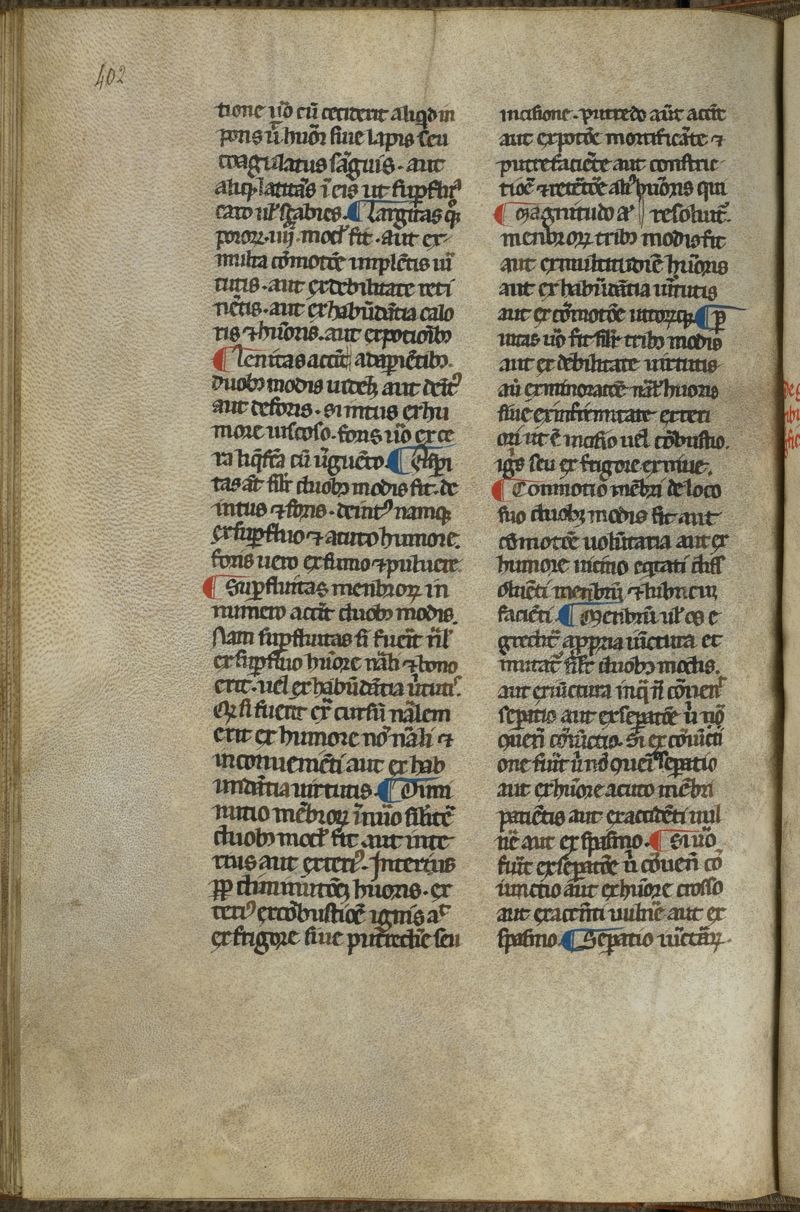 402
tione ů̃o cũ ceciderit aliqđ in
pons ũ huõr siue lapis seu
coagulatus sãguis . aut
aliq̃ latitãs ĩ eis ut suꝑflꝰ
caro ul̃ scabies . ¶ Largitas qꝫ
pororꝝ . iiij . mod̃ fit . aut ex
multa cõmotõe implẽtis uir
tutis . aut ex debilitate reti
nẽtis . aut ex habũdãtia calo
ris ⁊ huõris . aut ex potionibꝫ
¶ Lenitas accit̃ adaꝑiẽtibꝫ
duobꝫ modis aut deĩtꝰ
aut deforis . si intus ex hu
more uiscoso . foris ů̃o ex ce
ra liq̃fc̃a cũ ũguẽto . ¶ Asp̃i
tas at̃ sil̃r duobꝫ modis fit . de
intus ⁊ foris . deintꝰ namqꝫ
ex suꝑfluo ⁊ acuto humore .
foris uero ex fumo ⁊ puluere
¶ Suꝑfluitas menbrorꝝ in
numero accit̃ duobꝫ modis .
Nam suꝑfluitas si fuerit ñl̃
ex suꝑfluo huõre nãli ⁊ bono
erit . uel ex habũdãtia ũtutꝭ .
Qđ si fuerit ex̃ cursũ nãlem
erit ex humore nõ nãli ⁊
inconueniẽti aut ex hab
undãtia uirtutis . ¶ Dimi
nutio mẽbrorꝝ ĩmo silit̃e
duobꝫ mod̃ fit . aut inte
rius aut exterꝰ . Interius
ꝓꝑ diminutõeꝫ huõris . ex
terꝰ ex cõbustiõe ignis aᵗ
ex frigore siue putredĩe seu
incisione . putredo aũt accit̃
aut ex potõe mortificãte ⁊
putrefaciẽte aut constric
tiõe ⁊ retẽtõe alicꝰ huõris qui
¶ Magnitudo aͭ resoluit̃ .
menbrorꝝ tribꝫ modis fit
aut ex multitudiẽ huõris
aut ex habũdãtia uirtutis
aut ex cõmotõe utrorꝝqꝫ ¶ ꝑ
uitas ů̃o fit sil̃r tribꝫ modis
aut ex debilitate uirtutis
aũ ex minoratõe nãl̃ huoris
siue ex infirmitate exteri
ori ut ẽ incisio uel cõbustio .
igĩs seu ex frigore ex niue .
¶ Conmotio mẽbri de loco
suo duobꝫ modis fit aut
cõmotõe uolũtaria aut ex
humore uicino egrati diff
olue̾ti menbrũ ⁊ lubricuꝫ
faciẽti . ¶ Menbrũ ul̃ os e
gredit̃ a ꝓpria iũctura et
mutat̃ sil̃r duobꝫ modis .
aut ex iũctura in q̃ nͦ cõuenͭ
seꝑatio aut ex seꝑatõe ũ nõ
quen̾ cõiũctio . Si ex cõiũcti
one fiũt ũ nõ quen̾ seꝑatio
aut ex huõre acuto mẽbri
patiẽtis aut ex accidẽti uul
nẽ aut ex spasmo . ¶ Si ů̃o
fiũt ex seꝑatõe ũ cõuen̾ cõ
iunctio aut ex huõre grosso
aut ex accñti uulnẽ aut ex
spasmo . ¶ Seꝑatio iũctarꝝ